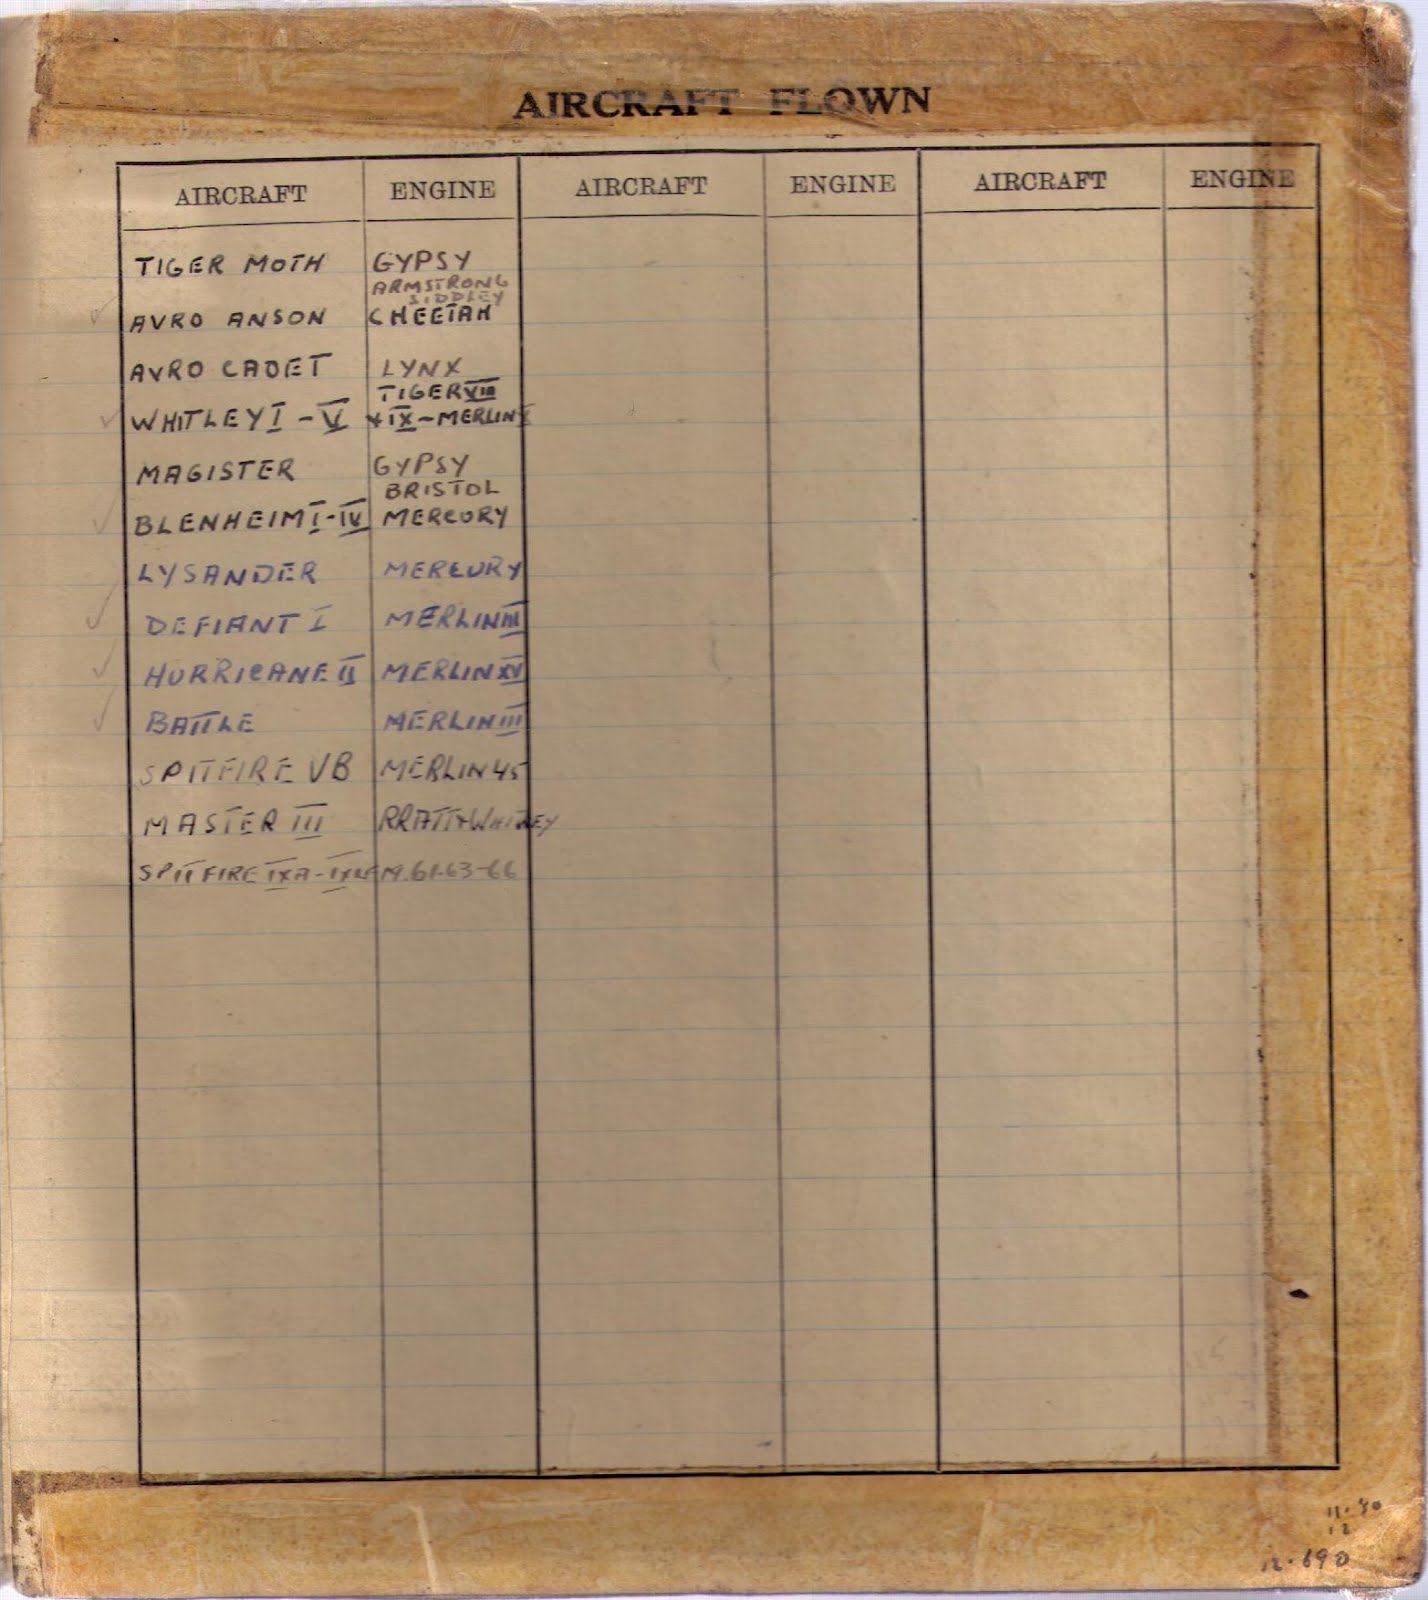 AIRCRAFT FLOWN
AIRCRAFT ENGINE AIRCRAFT ENGINE AIRCRAFT ENGINE
TIGER MOTH GYPSY
ARMSTRONG
SIDDLEY
AVRO ANSON CHEETAH
AVRO CADET LYNX
TIGER VIII
WHITLEY I - V + IX - MERLIN X
MAGISTER GYPSY
BRISTOL
BLENHEIM I - IV MERCURY
LYSANDER MERCURY
DEFIANT I MERLIN III
HURRICANE II MERLIN XV
BATTLE MERLIN III
SPITFIRE VB MERLIN 45
MASTER III PRATT & WHITNEY
SPITFIRE IXA - IXLF M.61-63-66
12
12.690